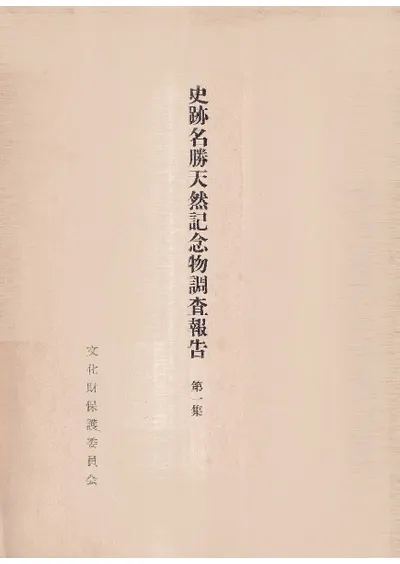 史跡名勝天然記念物調査報告 第一集
文化財保護委員会